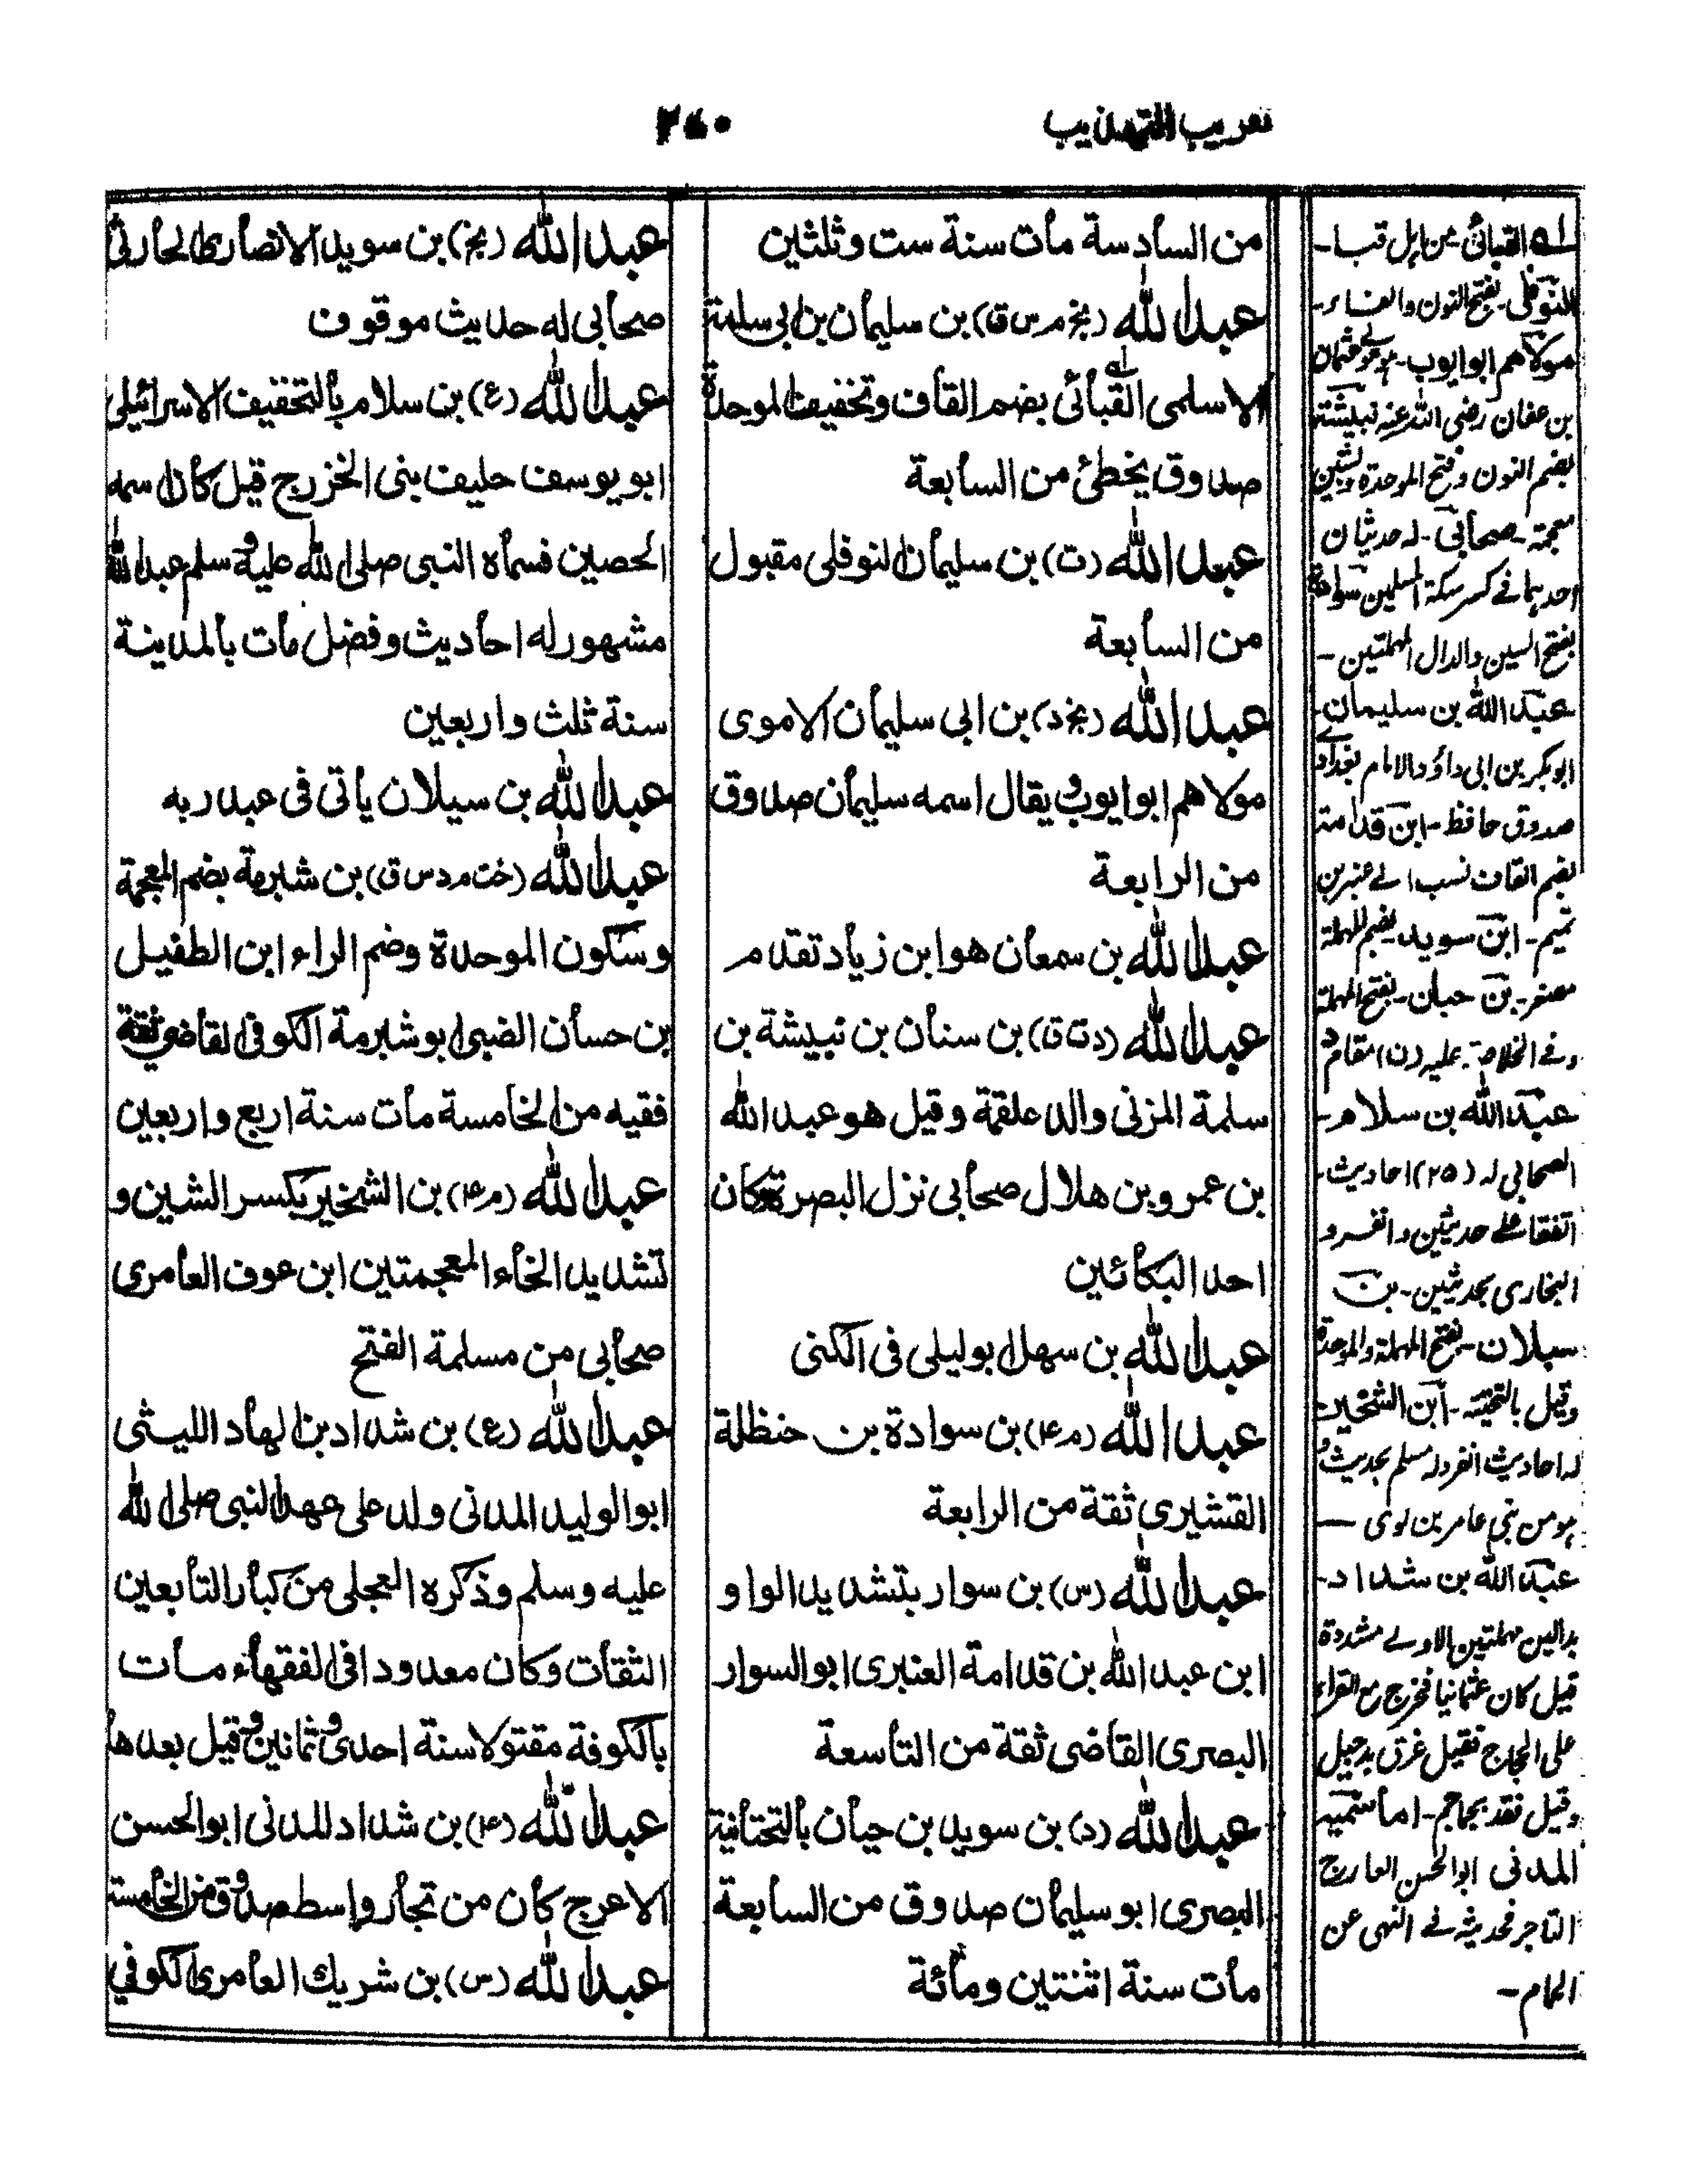 تقريب التهذيب
٢٦٠
من السادسة مات سنة ست وثلثين
عبد الله (بخ م س ق) بن سليمان بن ابى سلمة
الاسلمى القبائى بضم القاف وتخفيف الموحدة
صدوق يخطئ من السابعة
عبد الله (ت) بن سليمان النوفلى مقبول
من السابعة
عبد الله (بخ د) بن ابى سليمان الاموى
مولاهم ابو ايوب ويقال اسمه سليمان صدوق
من الرابعة
عبد الله بن سمعان هو ابن زياد تقدم
عبد الله (د ت ق) بن سنان بن نبيشة بن
سلمة المزنى والد علقمة وقيل هو عبد الله
بن عمرو بن هلال صحابى نزل البصرة وكان
احد البكائين
عبد الله بن سهل ابو ليلى فى الكنى
عبد الله (م ٤) بن سوادة بن حنظلة
القشيرى ثقة من الرابعة
عبد الله (س) بن سوار بتشديد الواو
ابن عبد الله بن قدامة العنبرى ابو السوار
البصرى القاضى ثقة من التاسعة
عبد الله (د) بن سويد بن حيان بالتحتانية
البصرى ابو سليمان صدوق من السابعة
مات سنة اثنتين ومائة
عبد الله (بخ) بن سويد الانصارى الحارثى
صحابى له حديث موقوف
عبد الله (ع) بن سلام بالتخفيف الاسرائيلى
ابو يوسف حليف بنى الخزرج قيل كان اسمه
الحصين فسماه النبى صلى الله عليه وسلم عبد الله
مشهور له احاديث وفضل مات بالمدينة
سنة ثلث واربعين
عبد الله بن سيلان يأتى فى عبد ربه
عبد الله (خت م د س ق) بن شبرمة بضم المعجمة
وسكون الموحدة وضم الراء ابن الطفيل
بن حسان الضبى ابو شبرمة الكوفى القاضى ثقة
فقيه من الخامسة مات سنة اربع واربعين
عبد الله (م ٤) بن الشخير بكسر الشين و
تشديد الخاء المعجمتين ابن عوف العامرى
صحابى من مسلمة الفتح
عبد الله (ع) بن شداد بن الهاد الليثى
ابو الوليد المدنى ولد على عهد النبى صلى الله
عليه وسلم وذكره العجلى من كبار التابعين
الثقات وكان معدودا فى الفقهاء مات
بالكوفة مقتولا سنة احدى وثمانين وقيل بعدها
عبد الله (٤) بن شداد المدنى ابو الحسن
الاعرج كان من تجار واسط صدوق من الخامسة
عبد الله (س) بن شريك العامرى الكوفى
له القبائى من اهل قبا-
النوفلى-بفتح النون والفاء-
مولاهم ابو ايوب-مولى عثمان
بن عفان رضى الله عنه نبيشة
بضم النون وفتح الموحدة وشين
معجمة-صحابى-له حديثان
احدهما فى كسر سكة المسلمين سوادة
بفتح السين والدال المهملتين-
عبد الله بن سليمان-
ابو بكر بن ابى داؤد الامام بغداد
صدوق حافظ-ابن قدامة
بضم القاف نسب الى عنبر بن
تميم-ابن سويد-بضم المهملة
مصغر-بن حبان-بفتح المهملة
وفى الخلاصة-عليه (ن) مقام د
عبد الله بن سلام-
الصحابى له (٢٥) احاديث-
اتفقا على حديثين وانفرد
البخارى بحديثين-بن
سيلان-بفتح المهملة والموحدة
وقيل بالتحتية-ابن الشخير-
له احاديث انفرد له مسلم بحديث و
هو من بنى عامر بن لوى —
عبد الله بن شداد-
بدالين مهملتين الاولى مشددة
قيل كان عثمانيا فخرج مع القراء
على الحجاج فقيل غرق بدجيل
وقيل فقد بجماجم-اما سميه
المدنى ابو الحسن العارج
التاجر فحديثه فى النهى عن
الحمام-